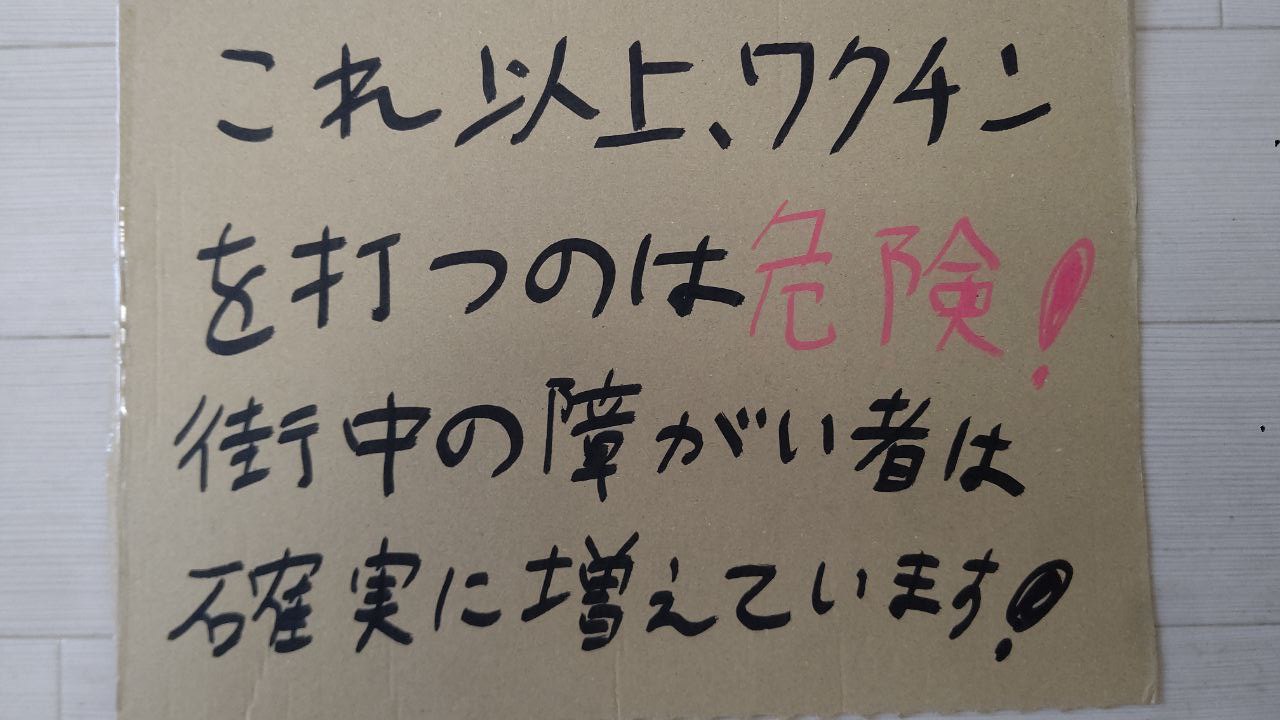 これ以上、ワクチン
を打つのは危険!
街中の障がい者は
確実に増えています!